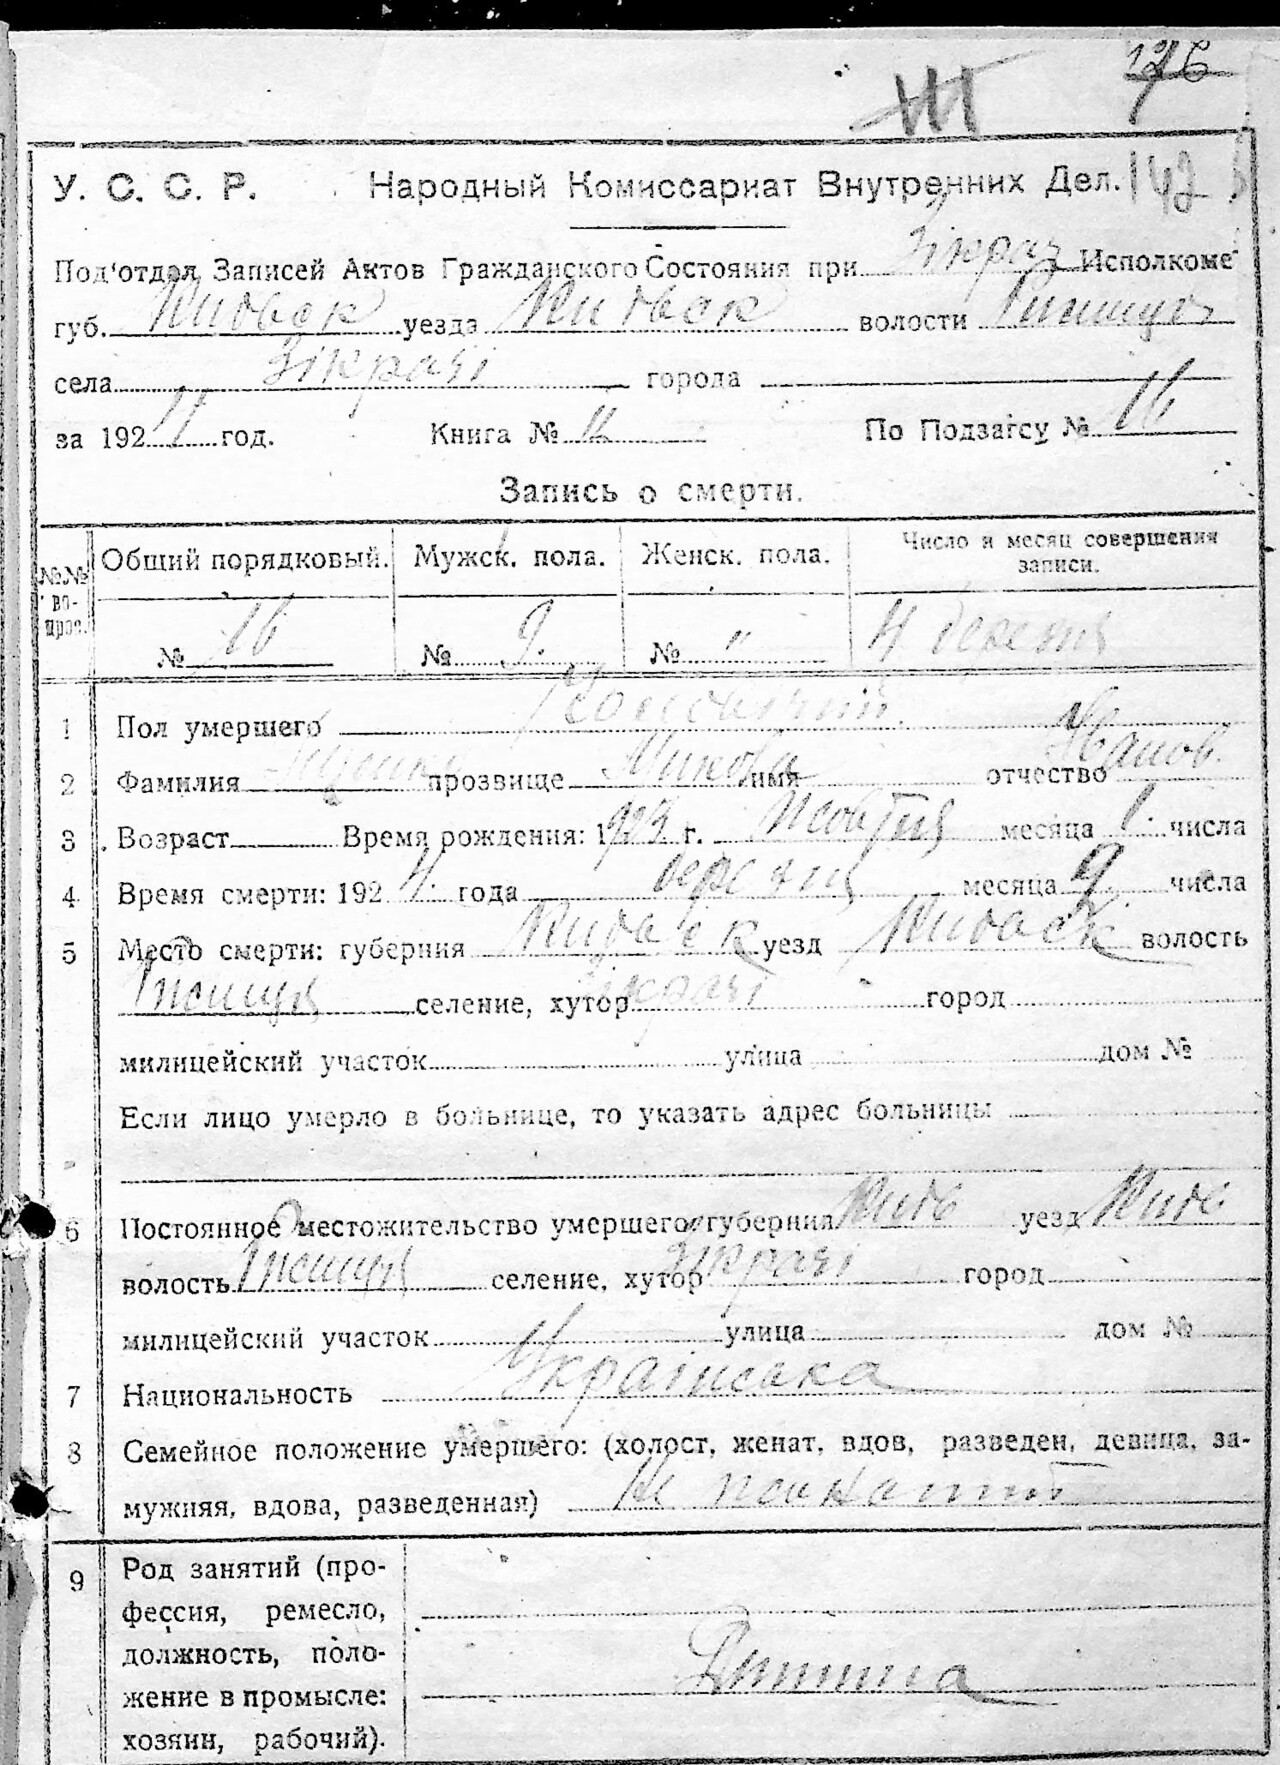 126
142
У. С. С. Р. Народный Комиссариат Внутренних Дел.
Под'отдел Записей Актов Гражданского Состояния при Зікрач Исполкоме
губ. Київськ уезда Київськ волости
села Зікрачі города
за 1924 год. Книга № " По Подзагсу № 16
Запись о смерти.
№№ вопрос. Общий порядковый. Мужск. пола. Женск. пола. Число и месяц совершения записи.
№ 16 № 9. № " 4 березня
1 Пол умершего Чоловичий
2 Фамилия прозвище Микола имя отчество Иванов.
3 Возраст Время рождения: 1923 г. Жовтня месяца 1 числа
4 Время смерти: 1924 года березня месяца 2 числа
5 Место смерти: губерния Київськ уезд Київськ волость
Ржищев селение, хутор Зікрачі город
милицейский участок улица дом №
Если лицо умерло в больнице, то указать адрес больницы
6 Постоянное местожительство умершего: губерния Київ уезд Київ
волость Ржищев селение, хутор Зікрачі город
милицейский участок улица дом №
7 Национальность Українська
8 Семейное положение умершего: (холост, женат, вдов, разведен, девица, за-
мужняя, вдова, разведенная) Не жонатий
9 Род занятий (про-
фессия, ремесло,
должность, поло-
жение в промысле:
хозяин, рабочий).
Дитина